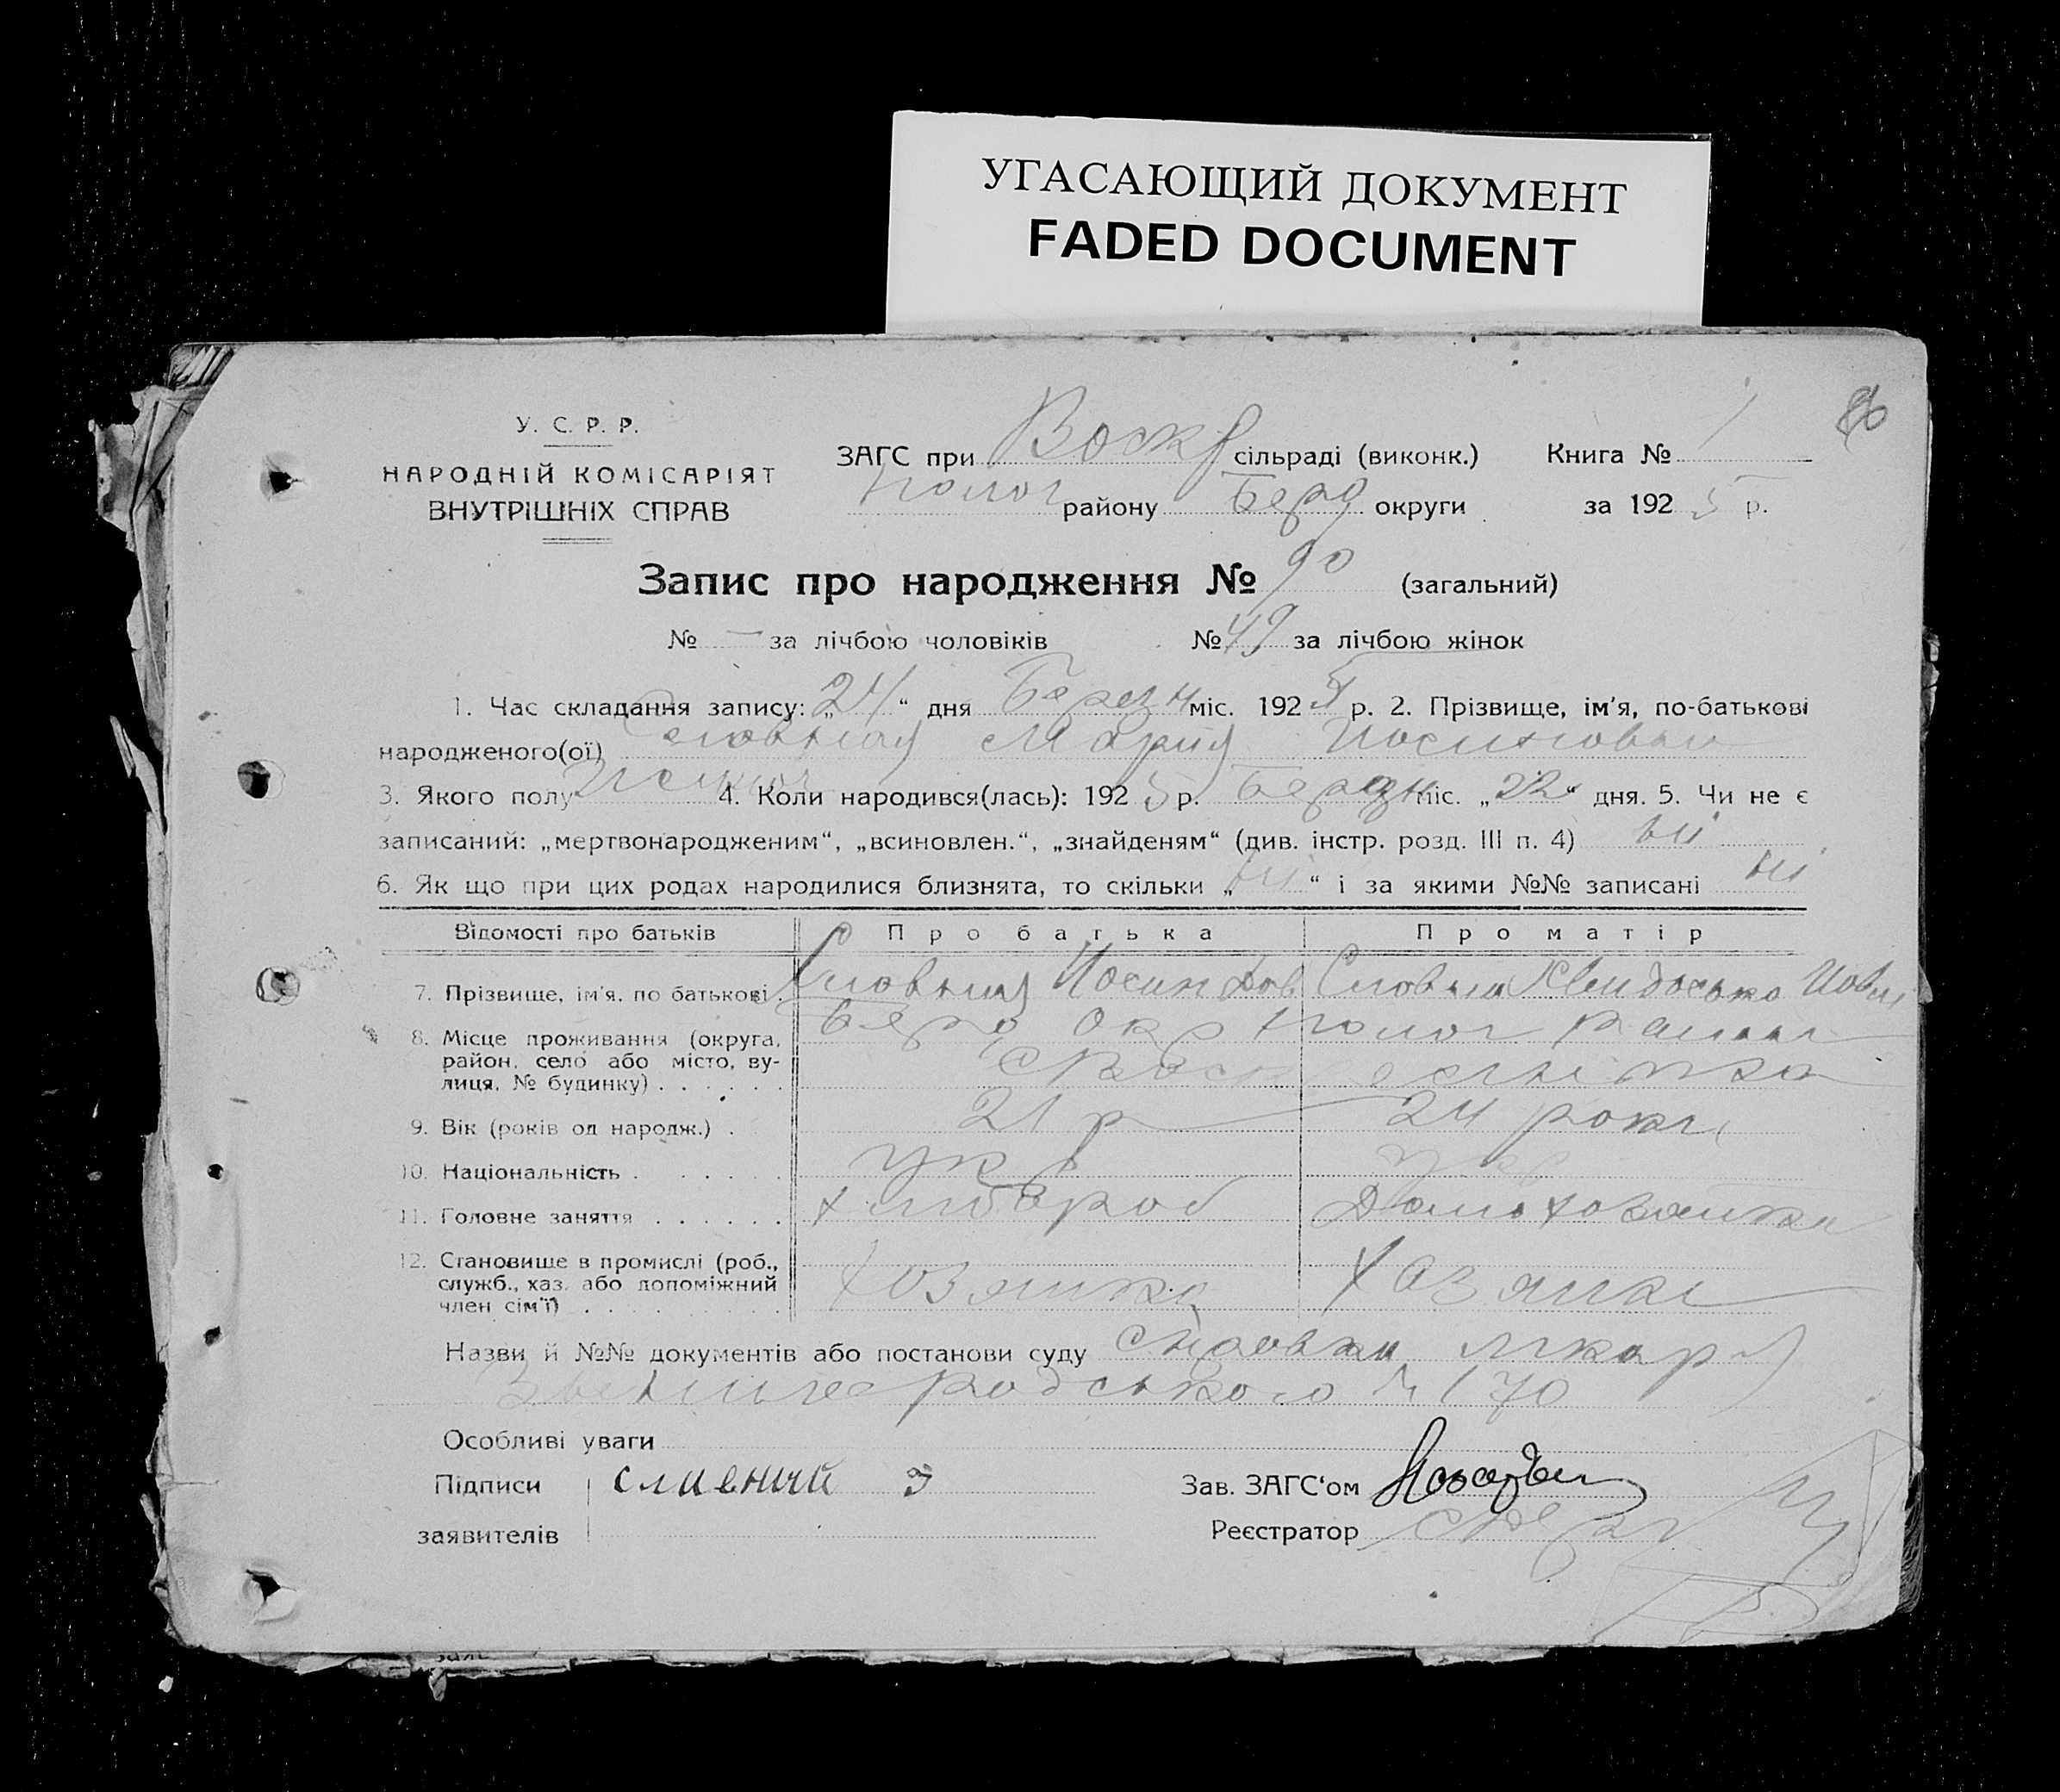 УГАСАЮЩИЙ ДОКУМЕНТ
FADED DOCUMENT
86
У. С. Р. Р.
НАРОДНІЙ КОМІСАРІЯТ
ВНУТРІШНІХ СПРАВ
ЗАГС при Воскр сільраді (виконк.) Книга № 1
Полог району Берд округи за 1925 р.
Запис про народження № 90 (загальний)
№ — за лічбою чоловіків № 49 за лічбою жінок
1. Час складання запису: „24“ дня Березн міс. 1925 р. 2. Прізвище, ім’я, по-батькові
народженого(ої) Мария
3. Якого полу 4. Коли народився(лась): 1925 р. Березн міс. „22“ дня. 5. Чи не є
записаний: „мертвонародженим“, „всиновлен.“, „знайденям“ (див. інстр. розд. III п. 4) ні
6. Як що при цих родах народилися близнята, то скільки „ні“ і за якими №№ записані ні
Відомості про батьків Про батька Про матір
7. Прізвище, ім’я, по батькові
8. Місце проживання (округа, Берд Окр Полог
район, село або місто, ву-
лиця, № будинку)
9. Вік (років од народж.) 21 р 24 роки
10. Національність укр укр
11. Головне заняття хлібороб Домохозяйка
12. Становище в промислі (роб.,
служб., хаз. або допоміжний хозяйка
член сім’ї)
Назви й №№ документів або постанови суду Справка лікаря
№ 170
Особливі уваги
Підписи сливний Зав. ЗАГС‘ом
заявителів Реєстратор